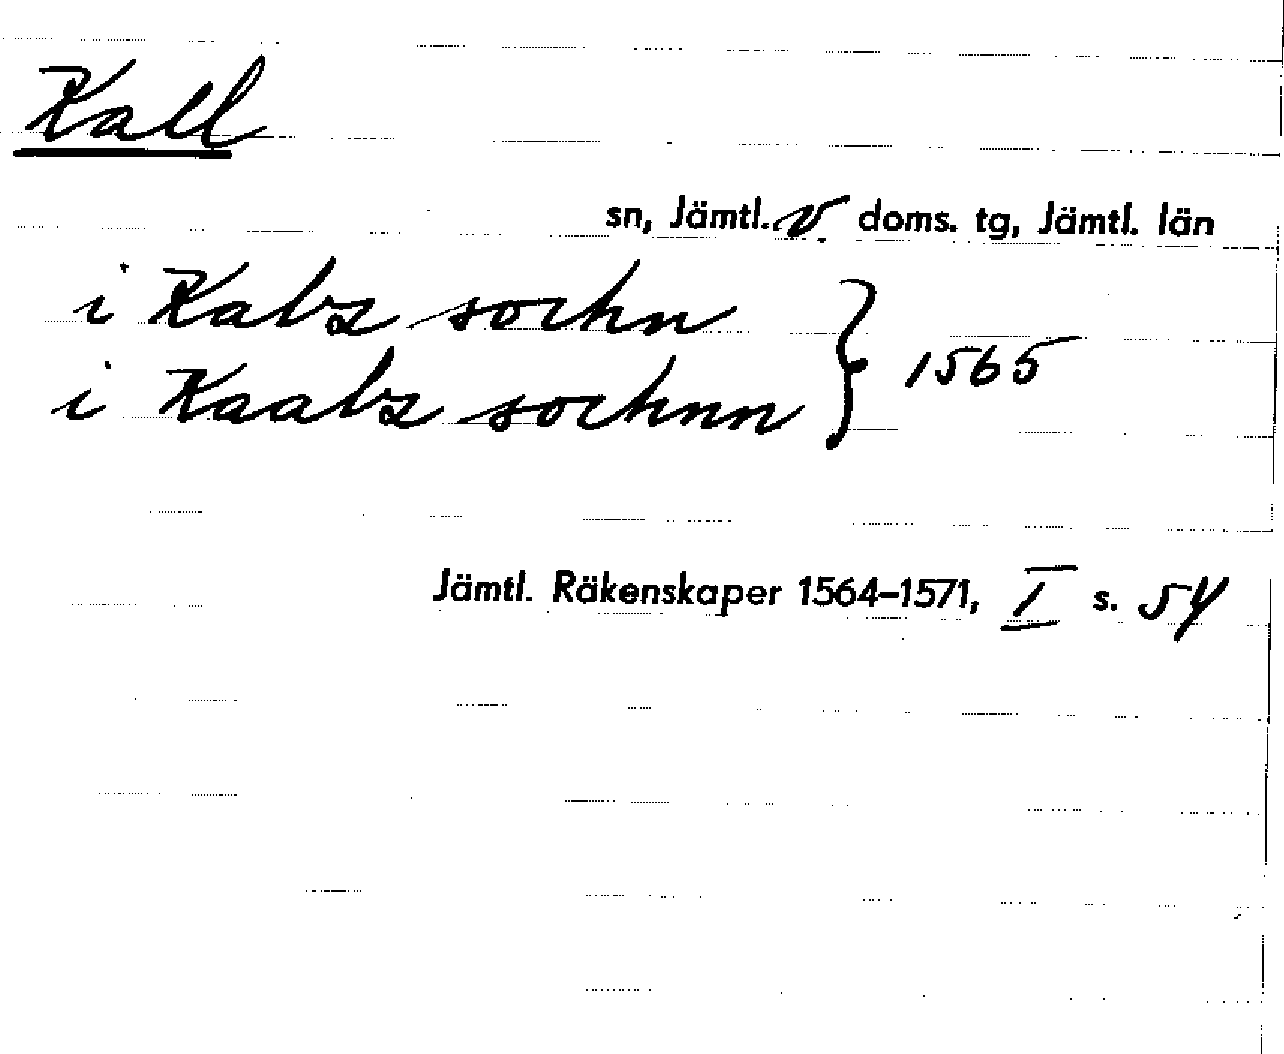 Kall
sn, Jämtl. v. doms. tg, Jämtl. län
i Kalz sochn
i Kaalz sochnn } 1565
Jämtl. Räkenskaper 1564–1571, I s. 54